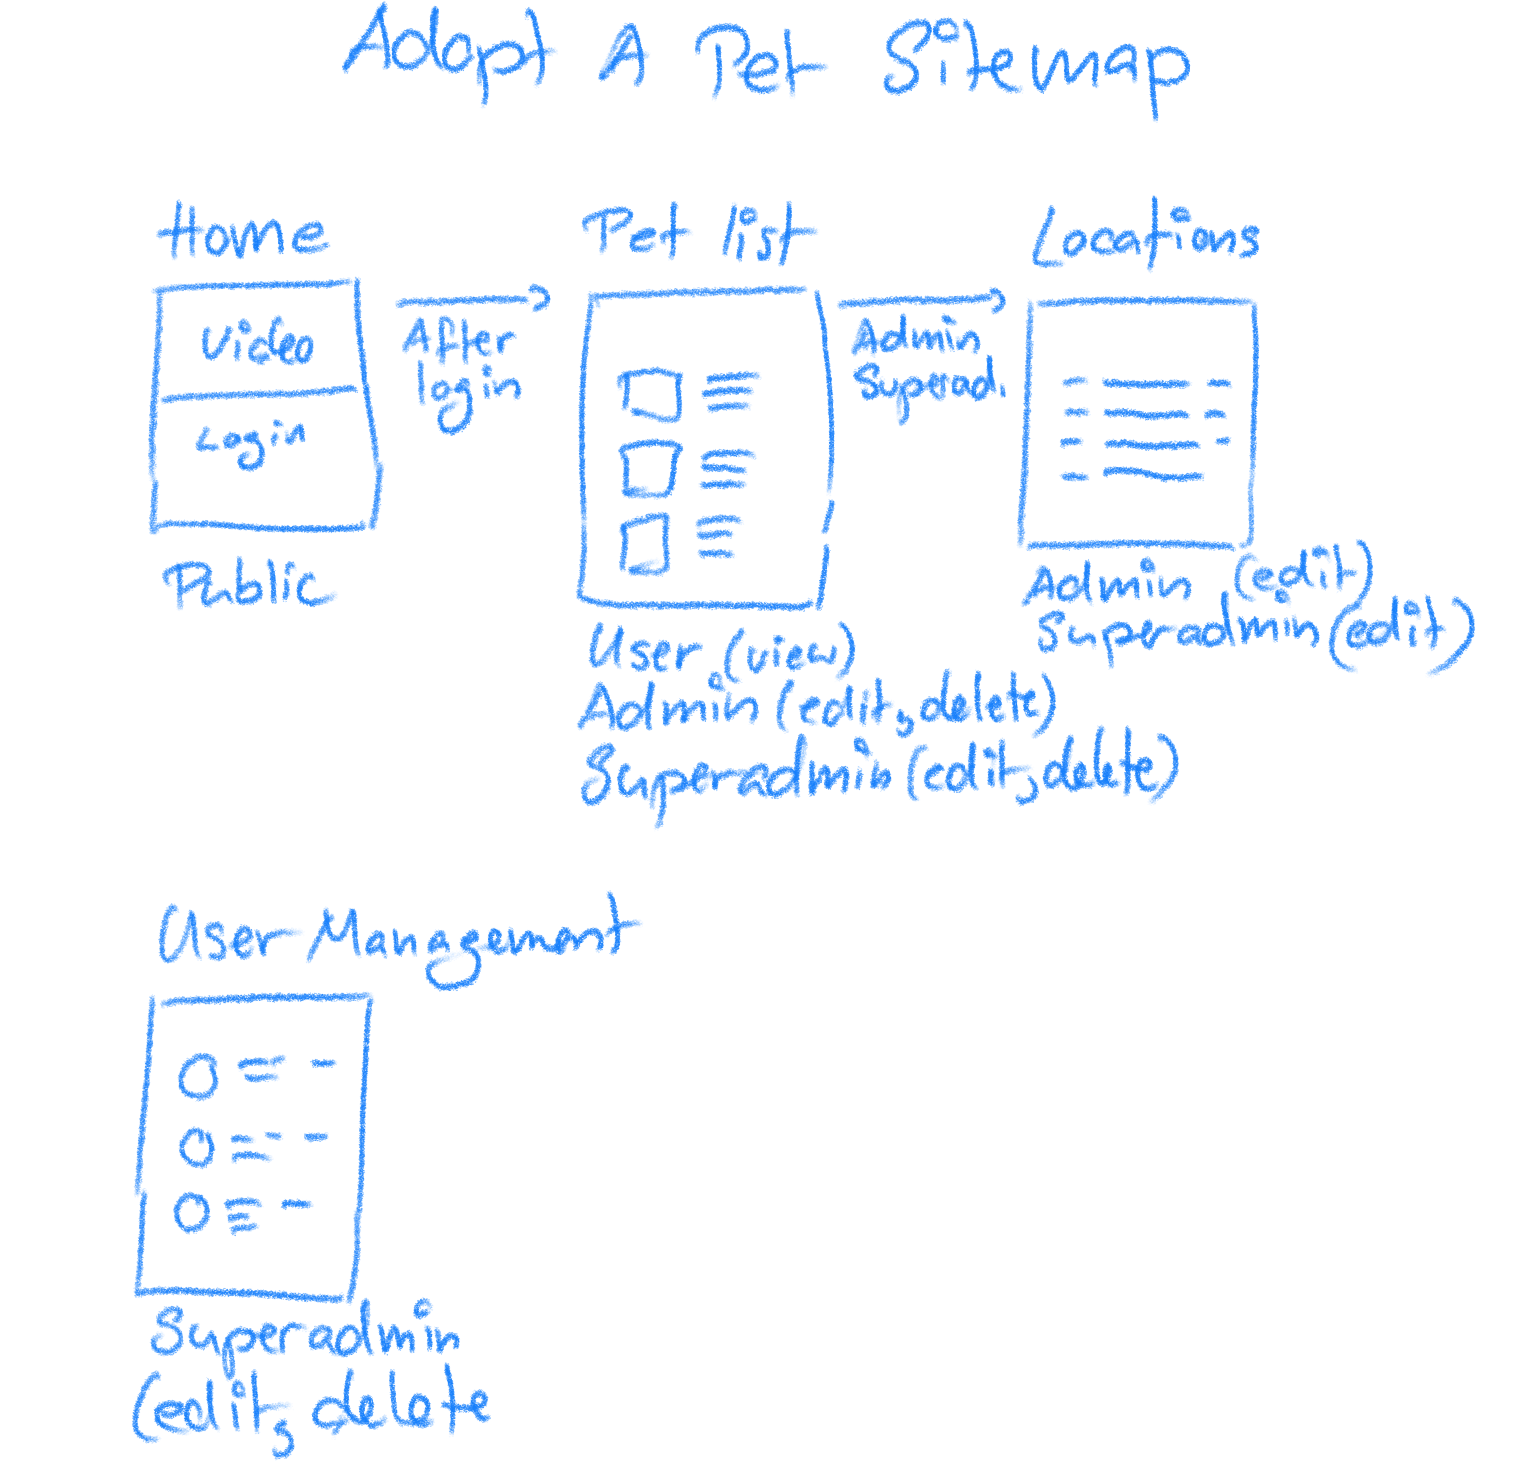 Adopt A Pet Sitemap
Home
Video
Login
Public
After
login
Pet list
User (view)
Admin (edit, delete)
Superadmin (edit, delete)
Admin
Superad.
Locations
Admin (edit)
Superadmin (edit)
User Management
Superadmin
(edit, delete